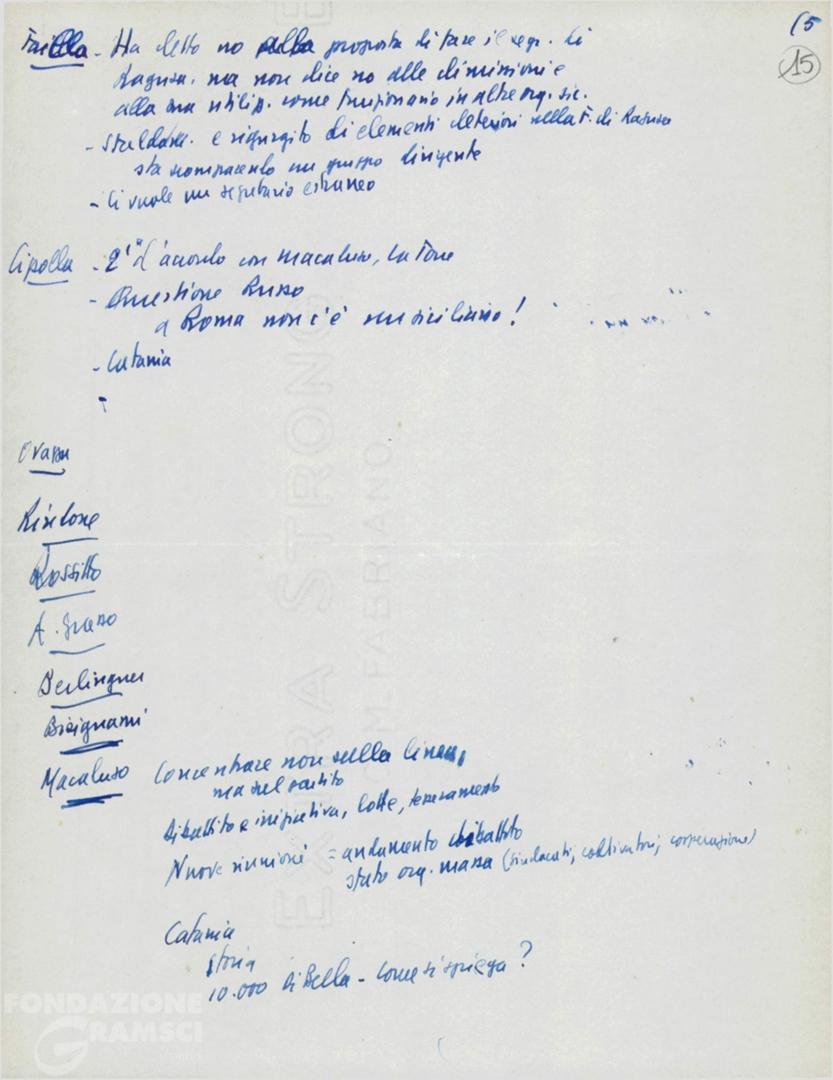 15
15
Failla - Ha detto no alla proposta di fare il segr. di
Ragusa. ma non dice no alle dimissioni e
alla sua utiliz. come funzionario in altre org. sic.
- e rigurgito di elementi deteriori nella F. di Ragusa
sta scomparendo un gruppo dirigente
- Ci vuole un segretario estraneo
Cipolla - E' d'accordo con Macaluso, La Torre
- Questione Russo
a Roma non c'è un siciliano!
- Catania
-
Ovazza
Rindone
Rossitto
A. Grasso
Berlinguer
Bisignani
Macaluso Concentrare non sulla linea,
ma sul partito
Dibattito e iniziativa, lotte, tesseramento
Nuove riunioni = andamento dibattito
stato org. massa (sindacati, coltivatori, cooperazione)
Catania
storia
10.000 di Bella - come si spiega?
EXTRA STRONG
C.M. FABRIANO
FONDAZIONE
GRAMSCI